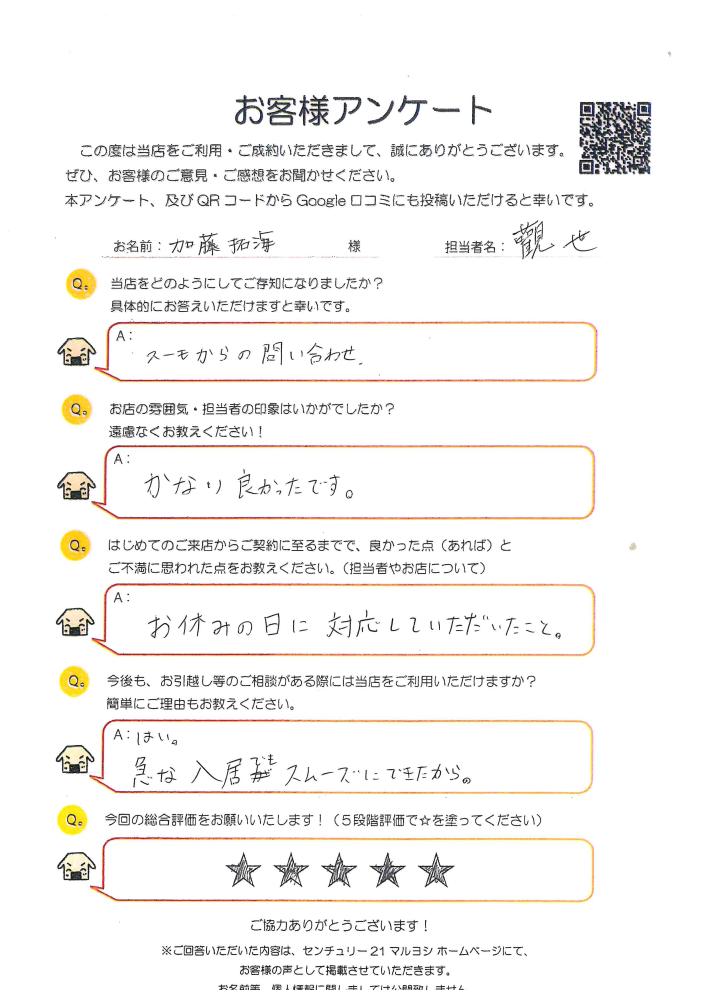 お客様アンケート
この度は当店をご利用・ご成約いただきまして、誠にありがとうございます。
ぜひ、お客様のご意見・ご感想をお聞かせください。
本アンケート、及びQRコードからGoogle口コミにも投稿いただけると幸いです。
お名前：加藤拓海 様 担当者名：觀也
Q。 当店をどのようにしてご存知になりましたか？
具体的にお答えいただけますと幸いです。
A：
スーモからの問い合わせ.
Q。 お店の雰囲気・担当者の印象はいかがでしたか？
遠慮なくお教えください！
A：
かなり良かったです。
Q。 はじめてのご来店からご契約に至るまでで、良かった点（あれば）と
ご不満に思われた点をお教えください。（担当者やお店について）
A：
お休みの日に対応していただいたこと。
Q。 今後も、お引越し等のご相談がある際には当店をご利用いただけますか？
簡単にご理由もお教えください。
A：はい。
急な入居でもスムーズにできたから。
Q。 今回の総合評価をお願いいたします！（５段階評価で☆を塗ってください）
★★★★★
ご協力ありがとうございます！
※ご回答いただいた内容は、センチュリー21マルヨシ ホームページにて、
お客様の声として掲載させていただきます。
お名前等、個人情報に関しましては公開致しません